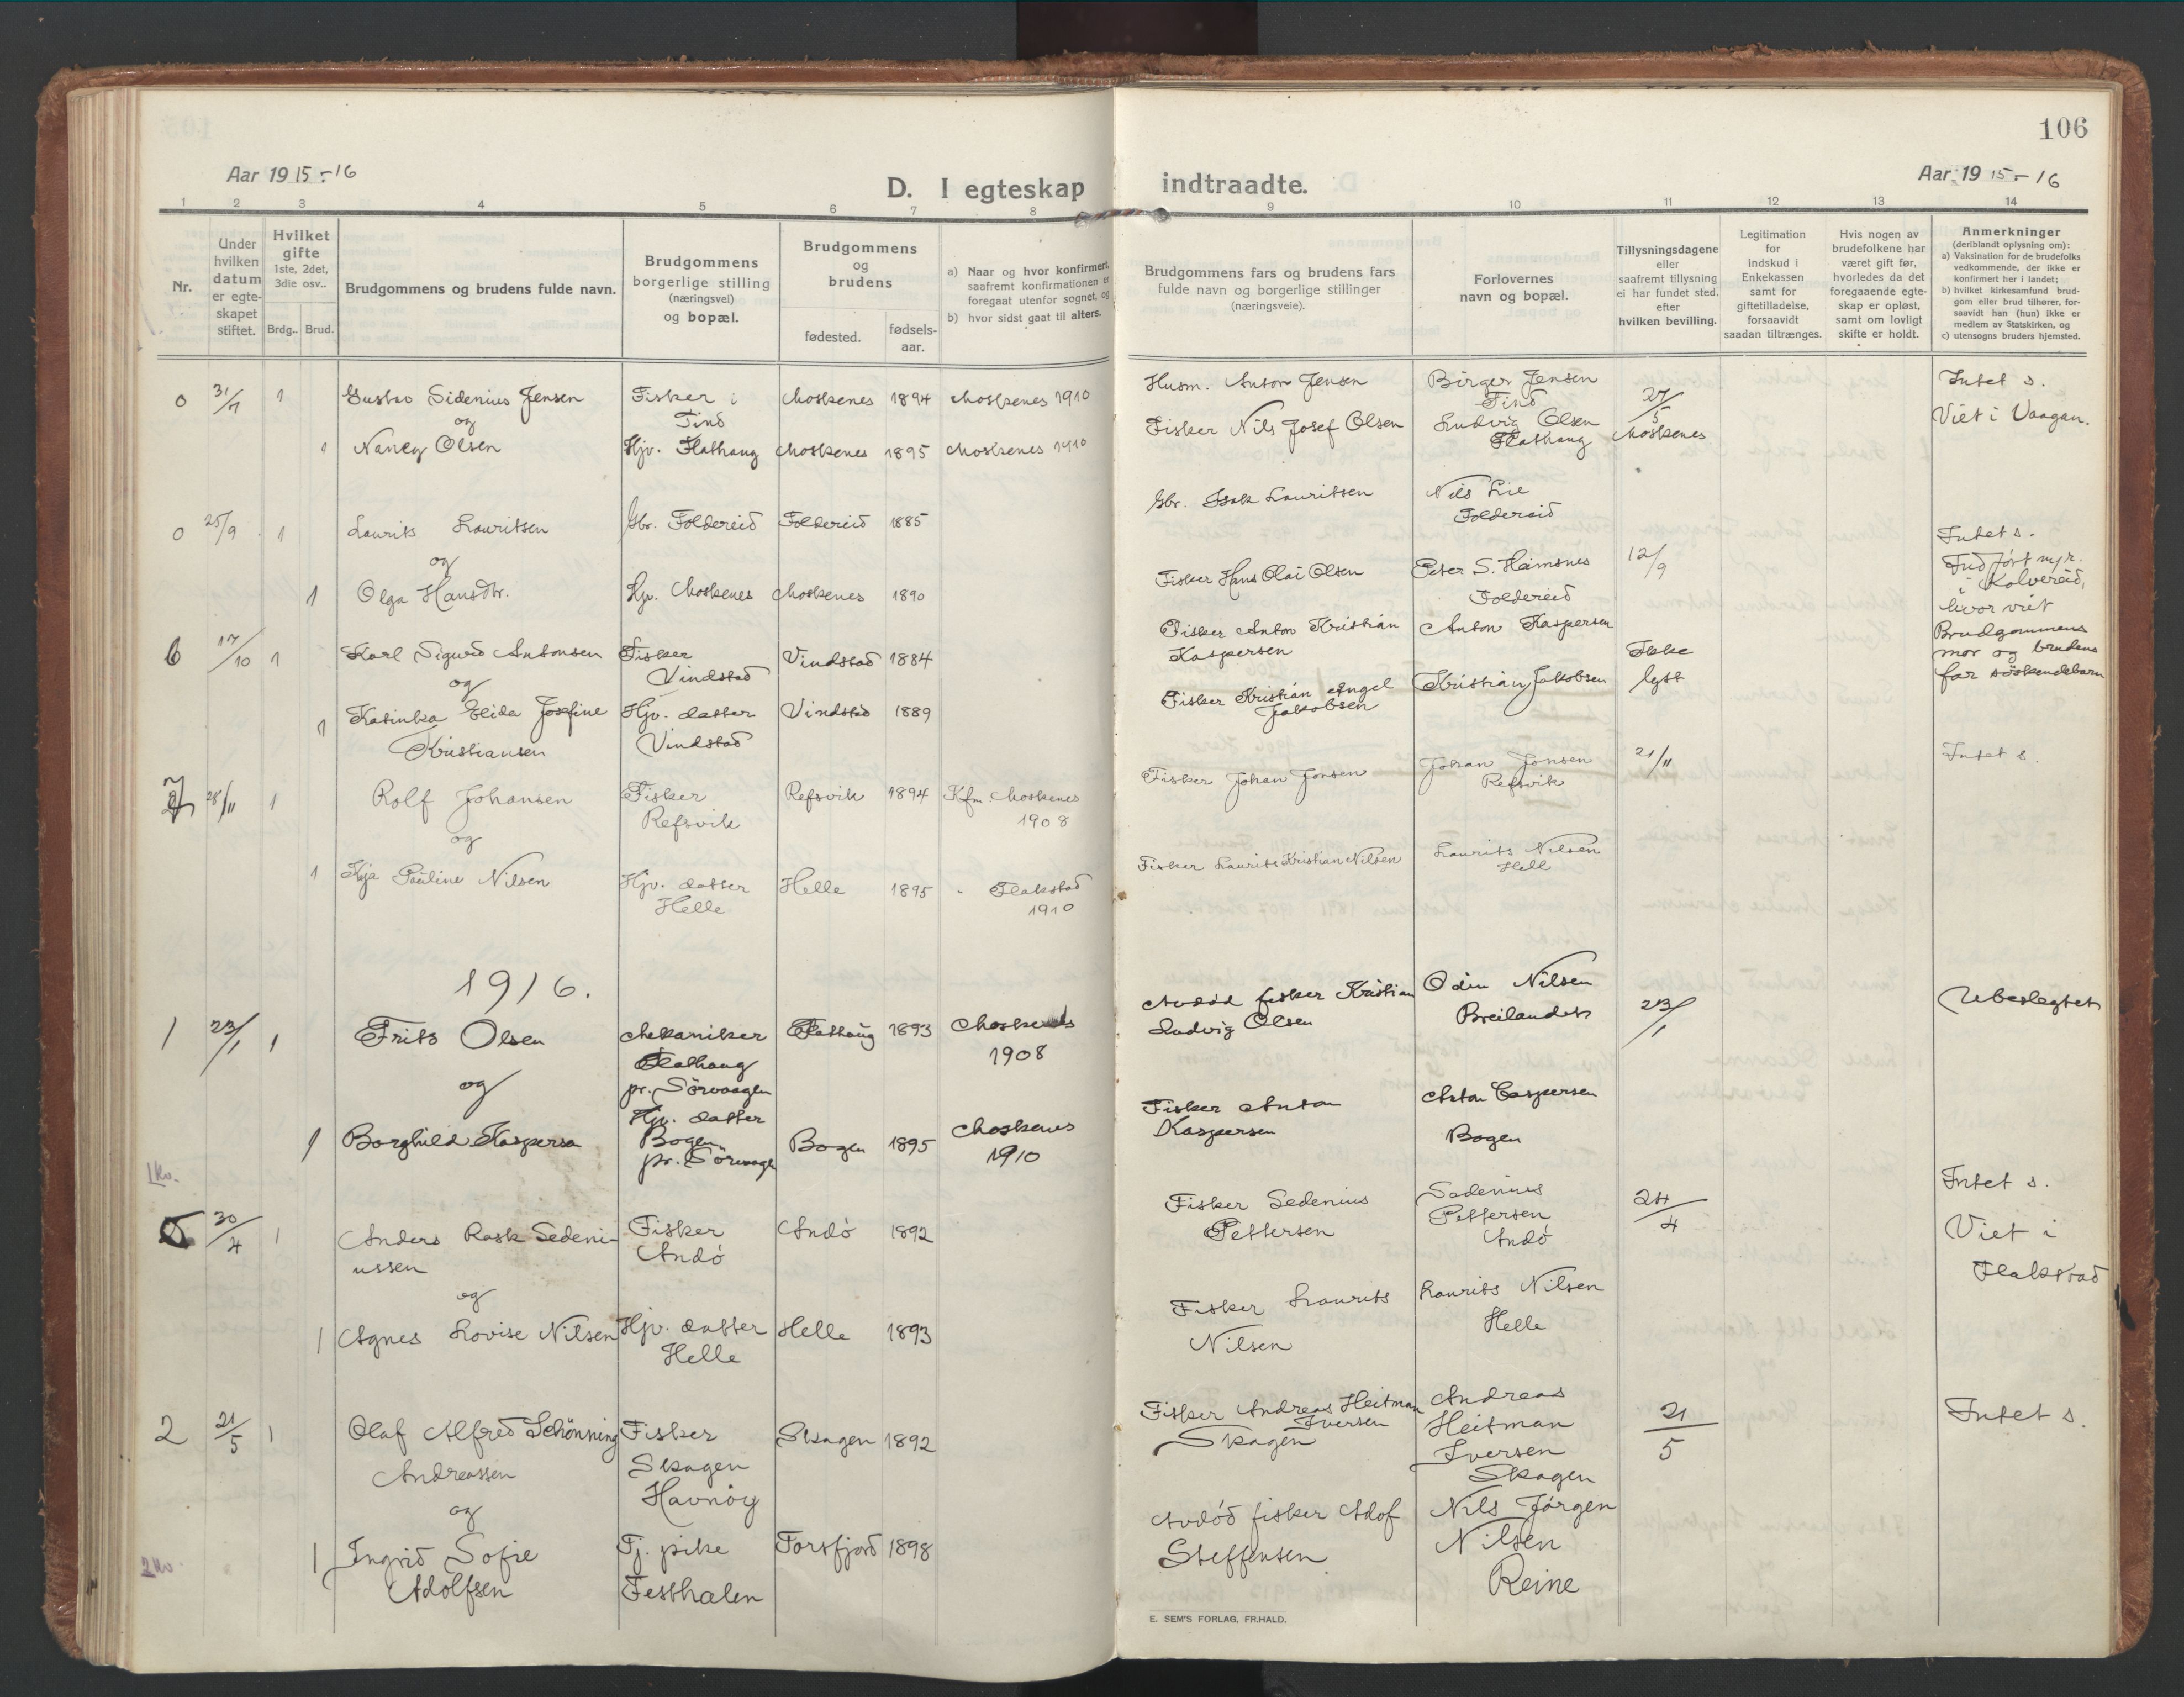 106
Aar 1915-16
Aar 1915-16
D. I egteskap indtraadte.
1 2 3 4 5 6 7 8 9 10 11 12 13 14
Nr.
Under hvilken datum er egte-skapet stiftet.
Hvilket gifte
1ste, 2det, 3die osv..
Brdg.. Brud.
Brudgommens og brudens fulde navn.
Brudgommens borgerlige stilling (næringsvei) og bopæl.
Brudgommens og brudens
fødested. fødsels-aar.
a) Naar og hvor konfirmert, saafremt konfirmationen er foregaat utenfor sognet, og
b) hvor sidst gaat til alters.
Brudgommens fars og brudens fars fulde navn og borgerlige stillinger (næringsveie).
Forlovernes navn og bopæl.
Tillysningsdagene eller saafremt tillysning ei har fundet sted. efter hvilken bevilling.
Legitimation for indskud i Enkekassen samt for giftetilladelse, forsaavidt saadan tiltrænges.
Hvis nogen av brudefolkene har været gift før, hvorledes da det foregaaende egte-skap er opløst, samt om lovligt skifte er holdt.
Anmerkninger
(deriblandt oplysning om):
a) Vaksination for de brudefolks vedkommende, der ikke er konfirmert her i landet;
b) hvilket kirkesamfund brud-gom eller brud tilhører, for-saavidt han (hun) ikke er medlem av Statskirken, og
c) utensogns bruders hjemsted.
0 31/7 1 Gustav Sidenius Jensen Fisker i Tind Moskenes 1894 Moskenes 1910 Husm. Anton Jensen Birger Jensen Tind 27/5 Moskenes Intet s.
og
1 Nancy Olsen Hjv. Flathaug Moskenes 1895 Moskenes 1910 Fisker Nils Josef Olsen Ludvig Olsen Flathaug Viet i Vaagan.
0 25/9 1 Laurits Lauritsen Gbr. Foldereid Foldereid 1885 Gbr. Isak Lauritsen Nils Lie Foldereid 12/9 Intet s.
og
1 Olga Hansdtr. Hjv. Moskenes Moskenes 1890 Fisker Hans Olai Olsen Peter S. Heimsnes Foldereid
Kolvereid, hvor viet
6 17/10 1 Karl Sigurd Antonsen Fisker Vindstad Vindstad 1884 Fisker Anton Kristian Kaspersen Anton Kaspersen Ikke lyst Brudgommens mor og brudens far söskendebarn
og
1 Katinka Elida Josfine Kristiansen Hjv. datter Vindstad Vindstad 1889 Fisker Kristian Angel Jakobsen Kristian Jakobsen
7 28/11 1 Rolf Johansen Fisker Refsvik Refsvik 1894 Kfm. Moskenes 1908 Fisker Johan Jonsen Johan Jonsen Refsvik 21/11 Intet s.
og
1 Kaja Pauline Nilsen Hjv. datter Helle Helle 1895 " Flakstad 1910 Fisker Laurits Kristian Nilsen Laurits Nilsen Hell
1916.
1 23/1 1 Frits Olsen Mekaniker Flathaug pr. Sörvaagen Flathaug 1893 Moskenes 1908 Avdöd fisker Kristian Ludvig Olsen Odin Nilsen 23/1 Ubeslegtet
og
1 Borghild Kaspersen Hjv. datter Bogen pr. Sörvaagen Bogen 1895 Moskenes 1910 Fisker Anton Kaspersen Anton Caspersen Bogen
1 Kv.
0 30/4 1 Anders Rask Sedeni-ussen Fisker Andö Andö 1892 Fisker Sedenius Pettersen Sedenius Pettersen Andö 24/4 Intet s.
og
1 Agnes Lovise Nilsen Hjv. datter Helle Helle 1893 Fisker Laurits Nilsen Laurits Nilsen Helle Viet i Flakstad
2 21/5 1 Olaf Alfred Schönning Andreassen Fisker Skagen Havnöy Skagen 1892 Fisker Andreas Heitman Iversen Skagen Andreas Heitman Iversen Skagen 21/5 Intet s.
og
1 Ingrid Sofie Adolfsen Tj. pike Festhælen Forsfjord 1898 Avdöd fisker Adof Steffensen Nils Jörgen Nilsen Reine
2 Kv.
E. SEM'S FORLAG, FR.HALD.